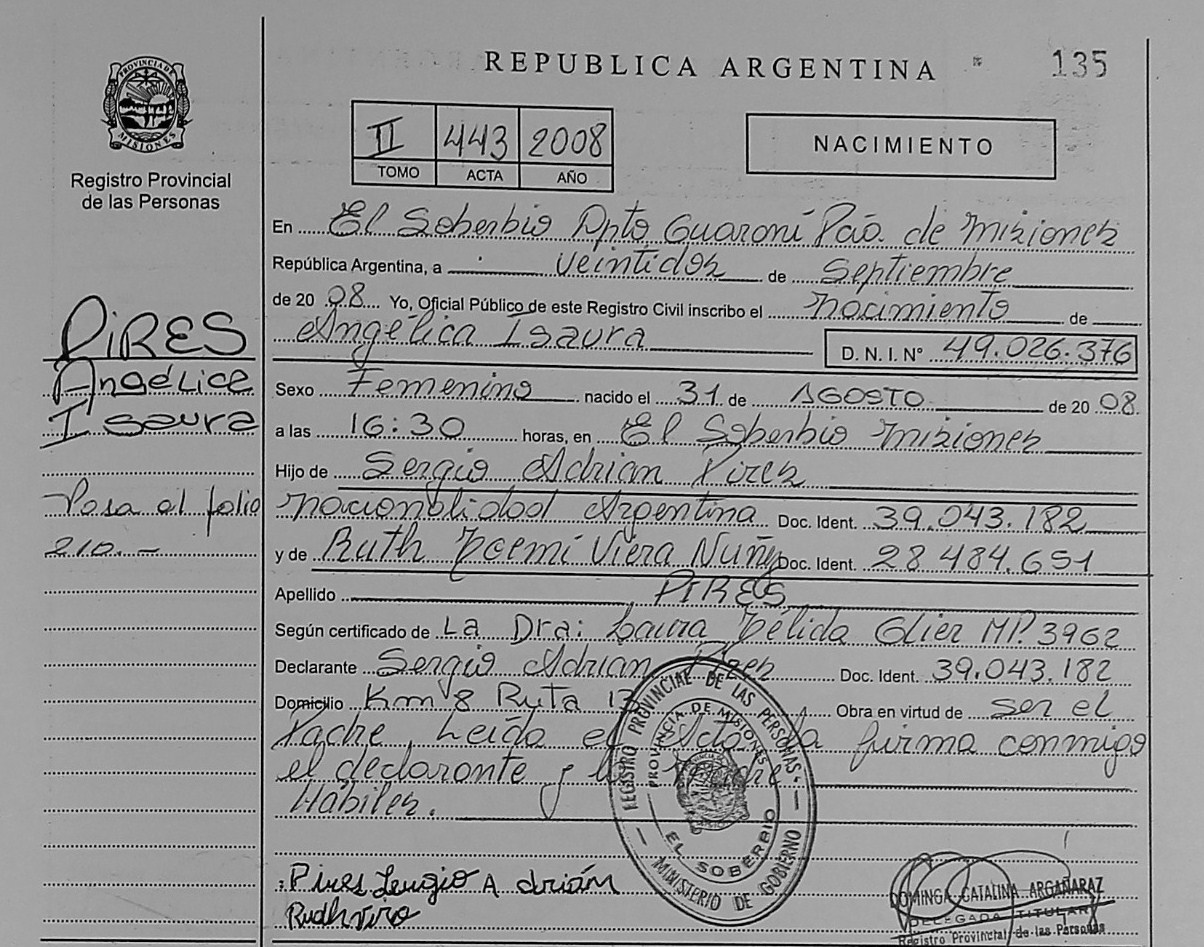 REPUBLICA ARGENTINA
Nº 135
PROVINCIA DE MISIONES
Registro Provincial
de las Personas
II 443 2008
TOMO ACTA AÑO
NACIMIENTO
En El Soberbio Dpto Guaraní Pcia. de Misiones
República Argentina, a veintidos de Septiembre
de 20 08. Yo, Oficial Público de este Registro Civil inscribo el nacimiento de
Angélica Isaura
D. N. I. Nº 49.026.376
PIRES
Angélica
Isaura
Sexo Femenino nacido el 31 de AGOSTO de 20 08.
a las 16:30 horas, en El Soberbio Misiones
Hijo de Sergio Adrian Pires
Pasa al folio
210.-
nacionalidad Argentina Doc. Ident. 39.043.182
y de Ruth Noemí Viera Nuñy Doc. Ident. 28.484.651
Apellido PIRES
Según certificado de La Dra: Laura Nélida Glier MP. 3962
Declarante Sergio Adrian Pires Doc. Ident. 39.043.182
Domicilio Km 8 Ruta 13 Obra en virtud de ser el
Padre, Leída el Acta la firma conmigo
el declarante y la Madre
Hábiles.
REGISTRO PROVINCIAL DE LAS PERSONAS
PROVINCIA DE MISIONES
EL SOBERBIO
MINISTERIO DE GOBIERNO
Pires Sergio Adrián
DOMINGA CATALINA ARGAÑARAZ
DELEGADA TITULAR
Registro Provincial de las Personas